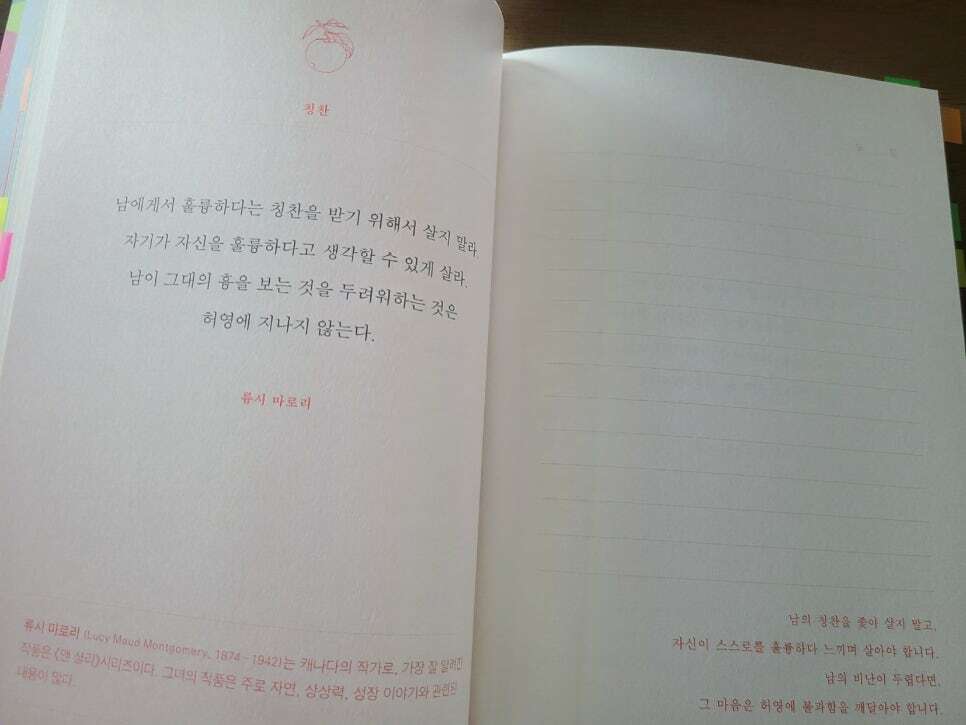 칭찬
남에게서 훌륭하다는 칭찬을 받기 위해서 살지 말라.
자기가 자신을 훌륭하다고 생각할 수 있게 살라.
남이 그대의 흉을 보는 것을 두려워하는 것은
허영에 지나지 않는다.
류시 마로리
류시 마로리 (Lucy Maud Montgomery, 1874-1942)는 캐나다의 작가로, 가장 잘 알려진
작품은 《앤 셜리》시리즈이다. 그녀의 작품은 주로 자연, 상상력, 성장 이야기와 관련된
내용이 많다.
남의 칭찬을 좇아 살지 말고,
자신이 스스로를 훌륭하다 느끼며 살아야 합니다.
남의 비난이 두렵다면,
그 마음은 허영에 불과함을 깨달아야 합니다.